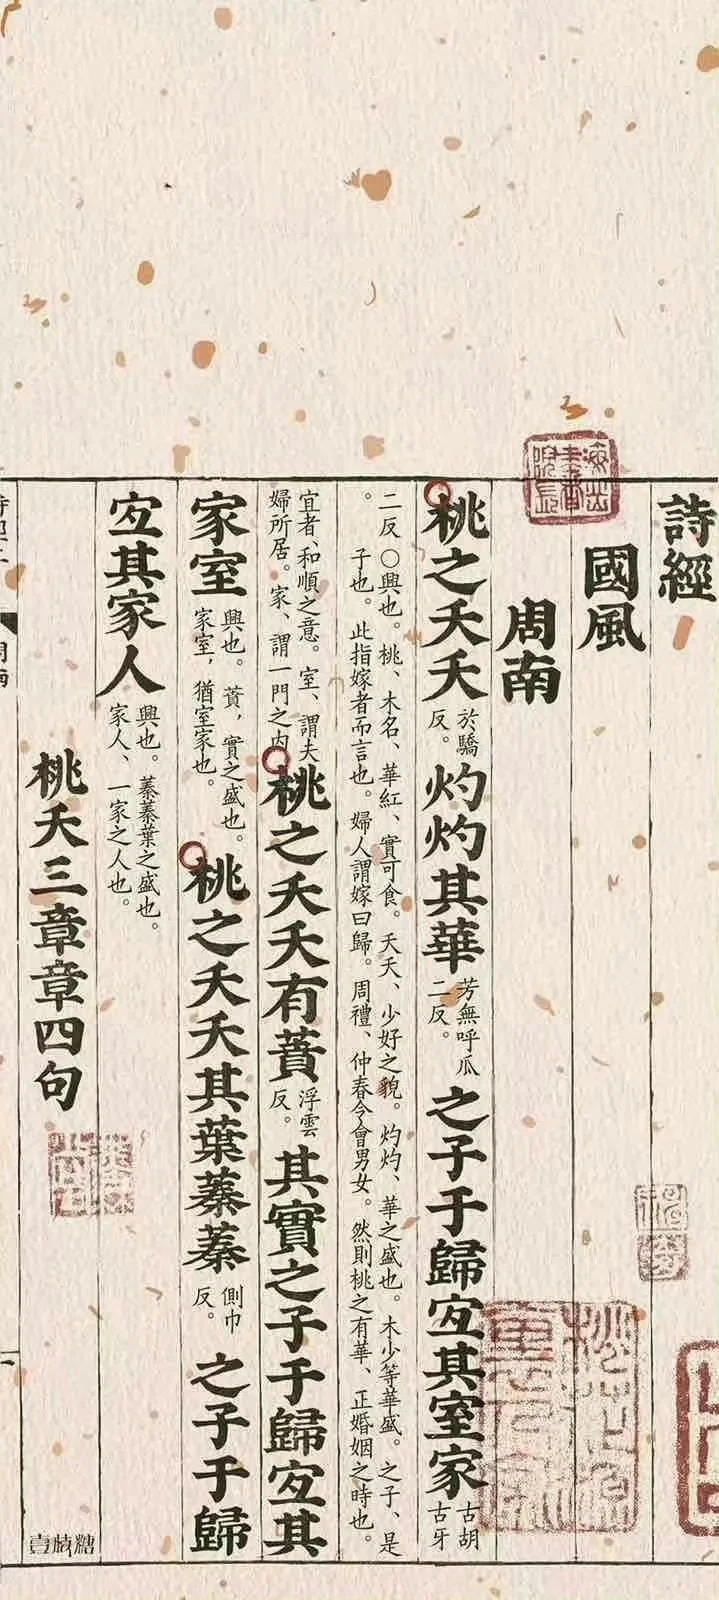 詩經
國風
周南
桃之夭夭於驕反。灼灼其華芳無呼瓜二反。之子于歸宜其室家古胡古牙
二反○興也。桃、木名、華紅、實可食。夭夭、少好之貌。灼灼、華之盛也。木少等華盛。之子、是
子也。此指嫁者而言也。婦人謂嫁曰歸。周禮、仲春令會男女。然則桃之有華、正婚姻之時也。
宜者、和順之意。室、謂夫婦所居。家、謂一門之内桃之夭夭有蕡浮雲反。其實之子于歸宜其
家室興也。蕡，實之盛也。家室，猶室家也。桃之夭夭其葉蓁蓁側巾反。之子于歸
宜其家人興也。蓁蓁葉之盛也。家人、一家之人也。
桃夭三章章四句